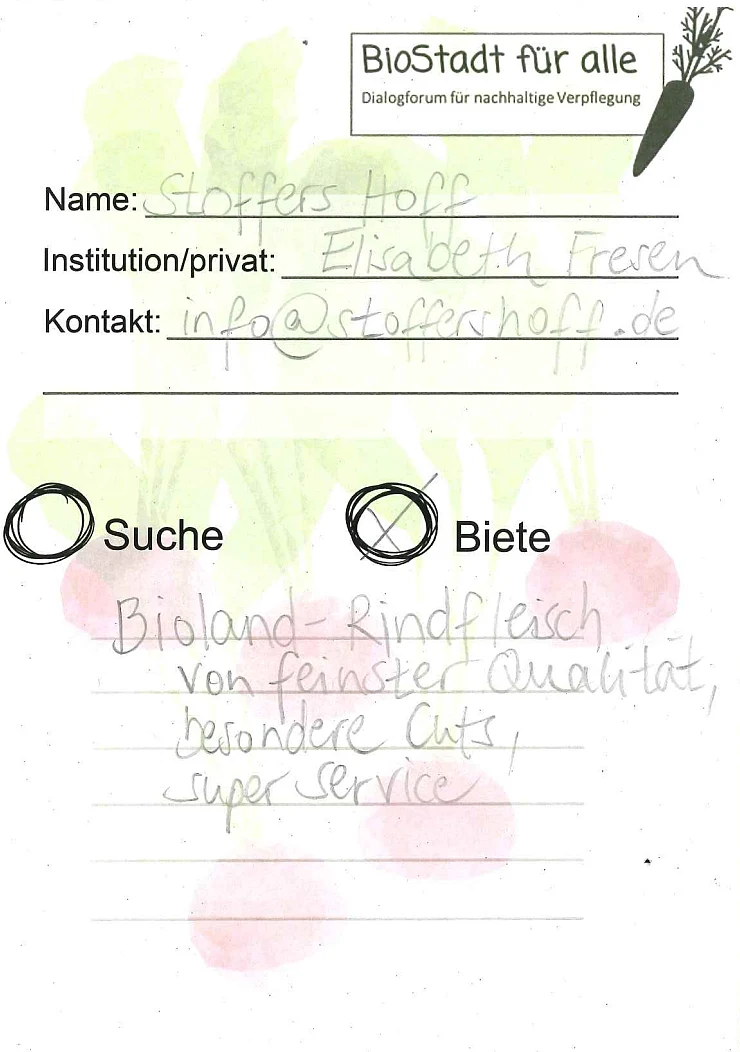 BioStadt für alle
Dialogforum für nachhaltige Verpflegung
Name: Stoffers Hoff
Institution/privat: Elisabeth Fresen
Kontakt: info@stoffershoff.de
Suche Biete
Bioland-Rindfleisch
von feinster Qualität,
besondere Cuts,
super service